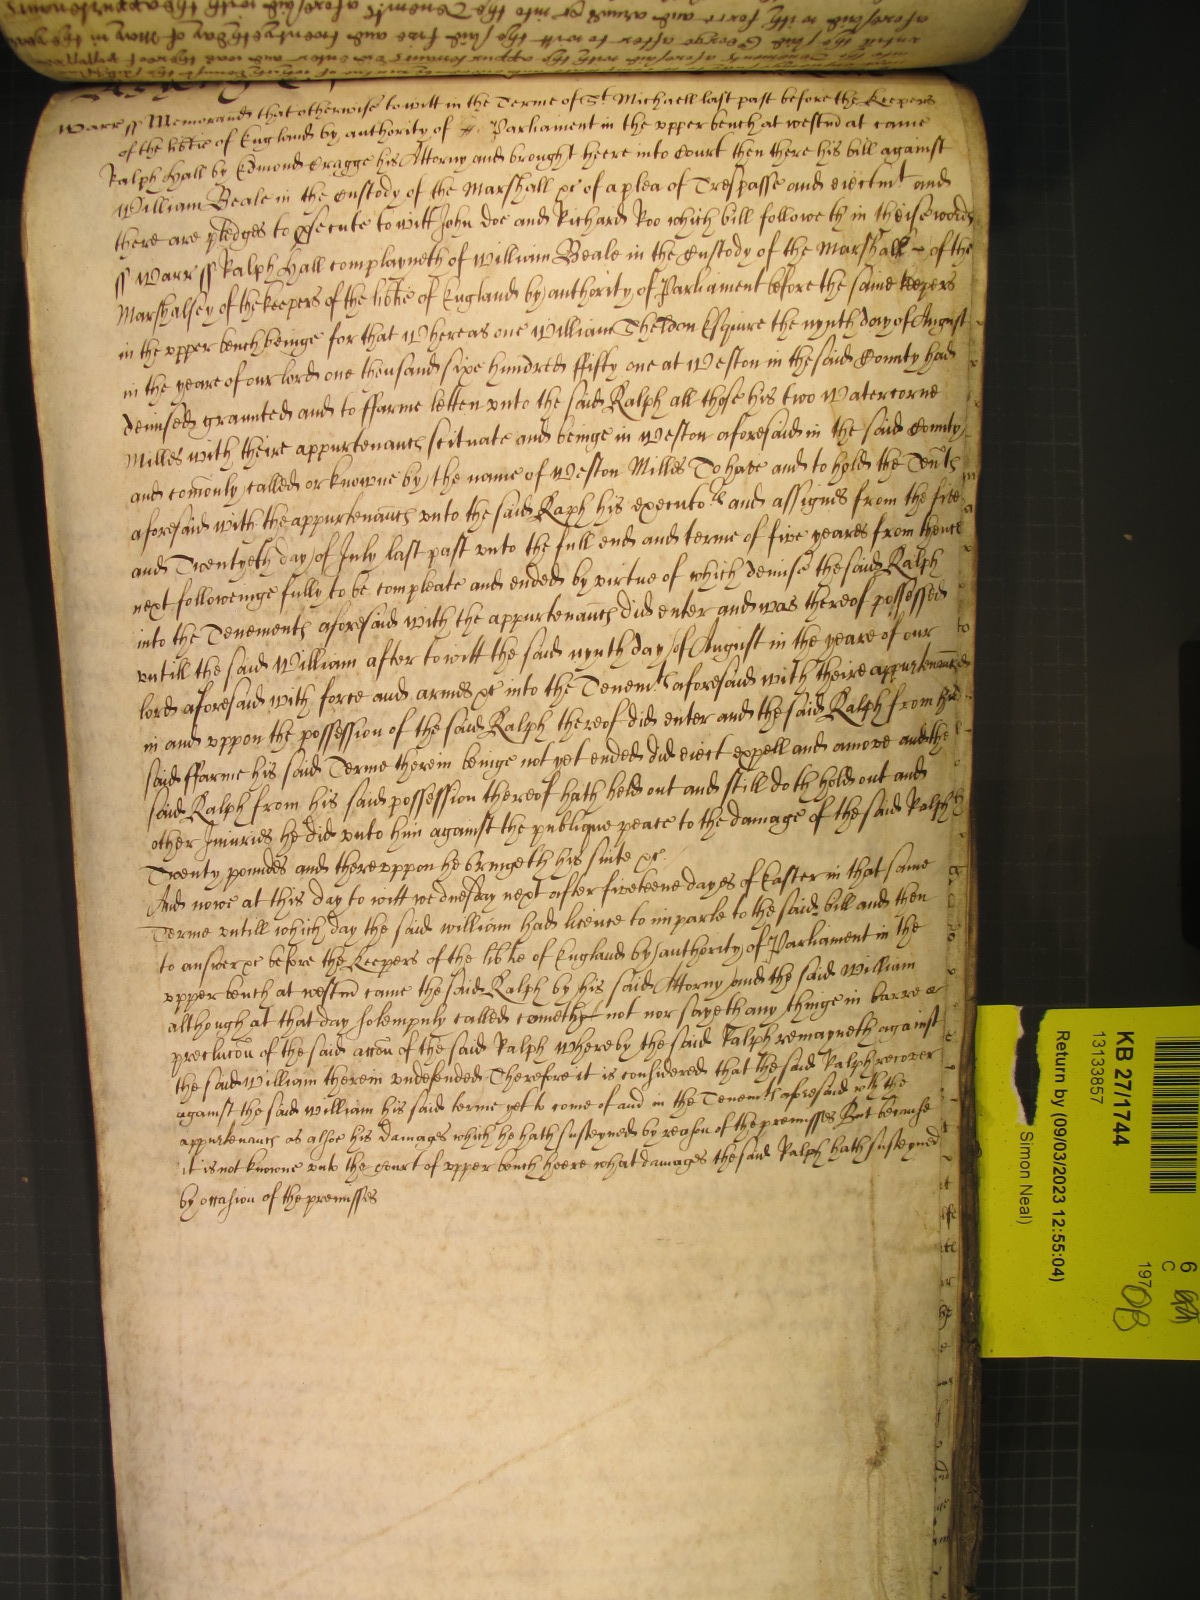 Warr ss Memorand that otherwise to witt in the Terme of St Michaell last past before the Keepers
of the libtie of England by authority of Parliament in the vpper bench at westm̃ at came
Ralph Hall by Edmond Cragge his Attorny and brought heere into Court then there his bill against
William Beale in the Custody of the Marshall &c of a plea of Trespasse and eiectmt and
there are pledges to psecute to witt John Doe and Richard Roo which bill followeth in theise words
ss Warr ss Ralph Hall complayneth of William Beale in the Custody of the Marshall of the
Marshalsey of the keepers of the libtie of England by authority of Parliament before the same keepers
in the vpper bench beinge for that Whereas one William Sheldon Esquire the nynth day of August
in the yeare of our lord one thousand sixe hundred ffifty one at Weston in the said County had
demised graunted and to ffarme letten vnto the said Ralph all those his two Watercorne
Milles with theire appurtenancs scituate and beinge in Weston aforesaid in the said County
and comonly called or knowne by the name of Weston Milles To have and to hold the Tents
aforesaid with the appurtenancs vnto the said Raph his executors and assignes from the five
and Twentyeth day of July last past vnto the full end and terme of five yeares from thence
next followeinge fully to be compleate and ended by virtue of which demise the said Ralph
into the Tenements aforesaid with the appurtenancs did enter and was thereof possessed
vntill the said William after to witt the said nynth day of August in the yeare of our
lord aforesaid with force and armes &c into the Tenemts aforesaid with theire appurtenances
in and vppon the possession of the said Ralph thereof did enter and the said Ralph from his
said ffarme his said Terme therein beinge not yet ended did eiect expell and amove and the
said Ralph from his said possession thereof hath held out and still doth hold out and
other Iniuries he did vnto him against the publique peace to the damage of the said Ralph
Twenty poundes and therevppon he bringeth his suite &c
And nowe at this day to witt wednesday next after fiveteene dayes of Easter in that same
Terme vntill which day the said william had licence to imparle to the said bill and then
to answer &c before the Keepers of the libtie of England by authority of Parliament in the
vpper bench at westm̃ came the said Ralph by his said Attorny and the said William
although at that day solempnly called cometh not nor sayeth any thinge in barre or
preclucõn of the said accõn of the said Ralph whereby the said Ralph remayneth against
the said William therein vndefended Therefore it is considered that the said Ralph recover
against the said William his said terme yet to come of and in the Tenemts aforesaid wth the
appurtenancs as alsoe his damages which he hath susteyned by reason of the premisses But because
it is not knowne vnto the Court of vpper bench heere what damages the said Ralph hath susteyned
by occasion of the premisses
KB 27/1744
13133857
Return by (09/03/2023 12:55:04)
Simon Neal)
6
C
197